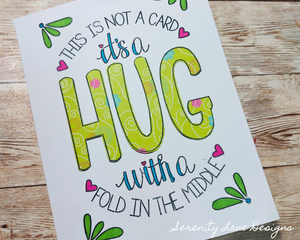 THIS IS NOT A CARD
it's a
HUG
with a
FOLD IN THE MIDDLE
Serenity Lane Designs